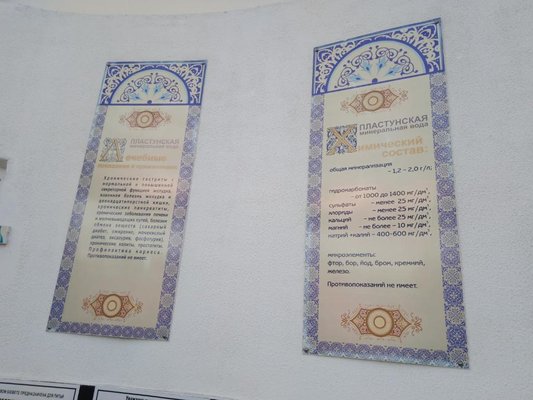 ПЛАСТУНСКАЯ
минеральная вода
Лечебные
показания к применению:
Хронические гастриты с
нормальной и повышенной
секреторной функцией желудка,
язвенная болезнь желудка и
двенадцатиперстной кишки,
хронические панкреатиты,
хронические заболевания печени
и желчевыводящих путей, болезни
обмена веществ (сахарный
диабет, ожирение, мочекислый
диатез, оксалурия, фосфатурия),
хронические колиты, простатиты.
Профилактика кариеса.
Противопоказаний не имеет.
ПЛАСТУНСКАЯ
минеральная вода
Химический
состав:
общая минерализация
– 1,2 – 2,0 г/л;
гидрокарбонаты
– от 1000 до 1400 мг/дм³,
сульфаты – менее 25 мг/дм³,
хлориды – менее 25 мг/дм³,
кальций – не более 25 мг/дм³,
магний – не более – 10 мг/дм³,
натрий+калий – 400-600 мг/дм³,
микроэлементы:
фтор, бор, йод, бром, кремний,
железо.
Противопоказаний не имеет.
ПРЕДНАЗНАЧЕНА ДЛЯ ПИТЬЯ